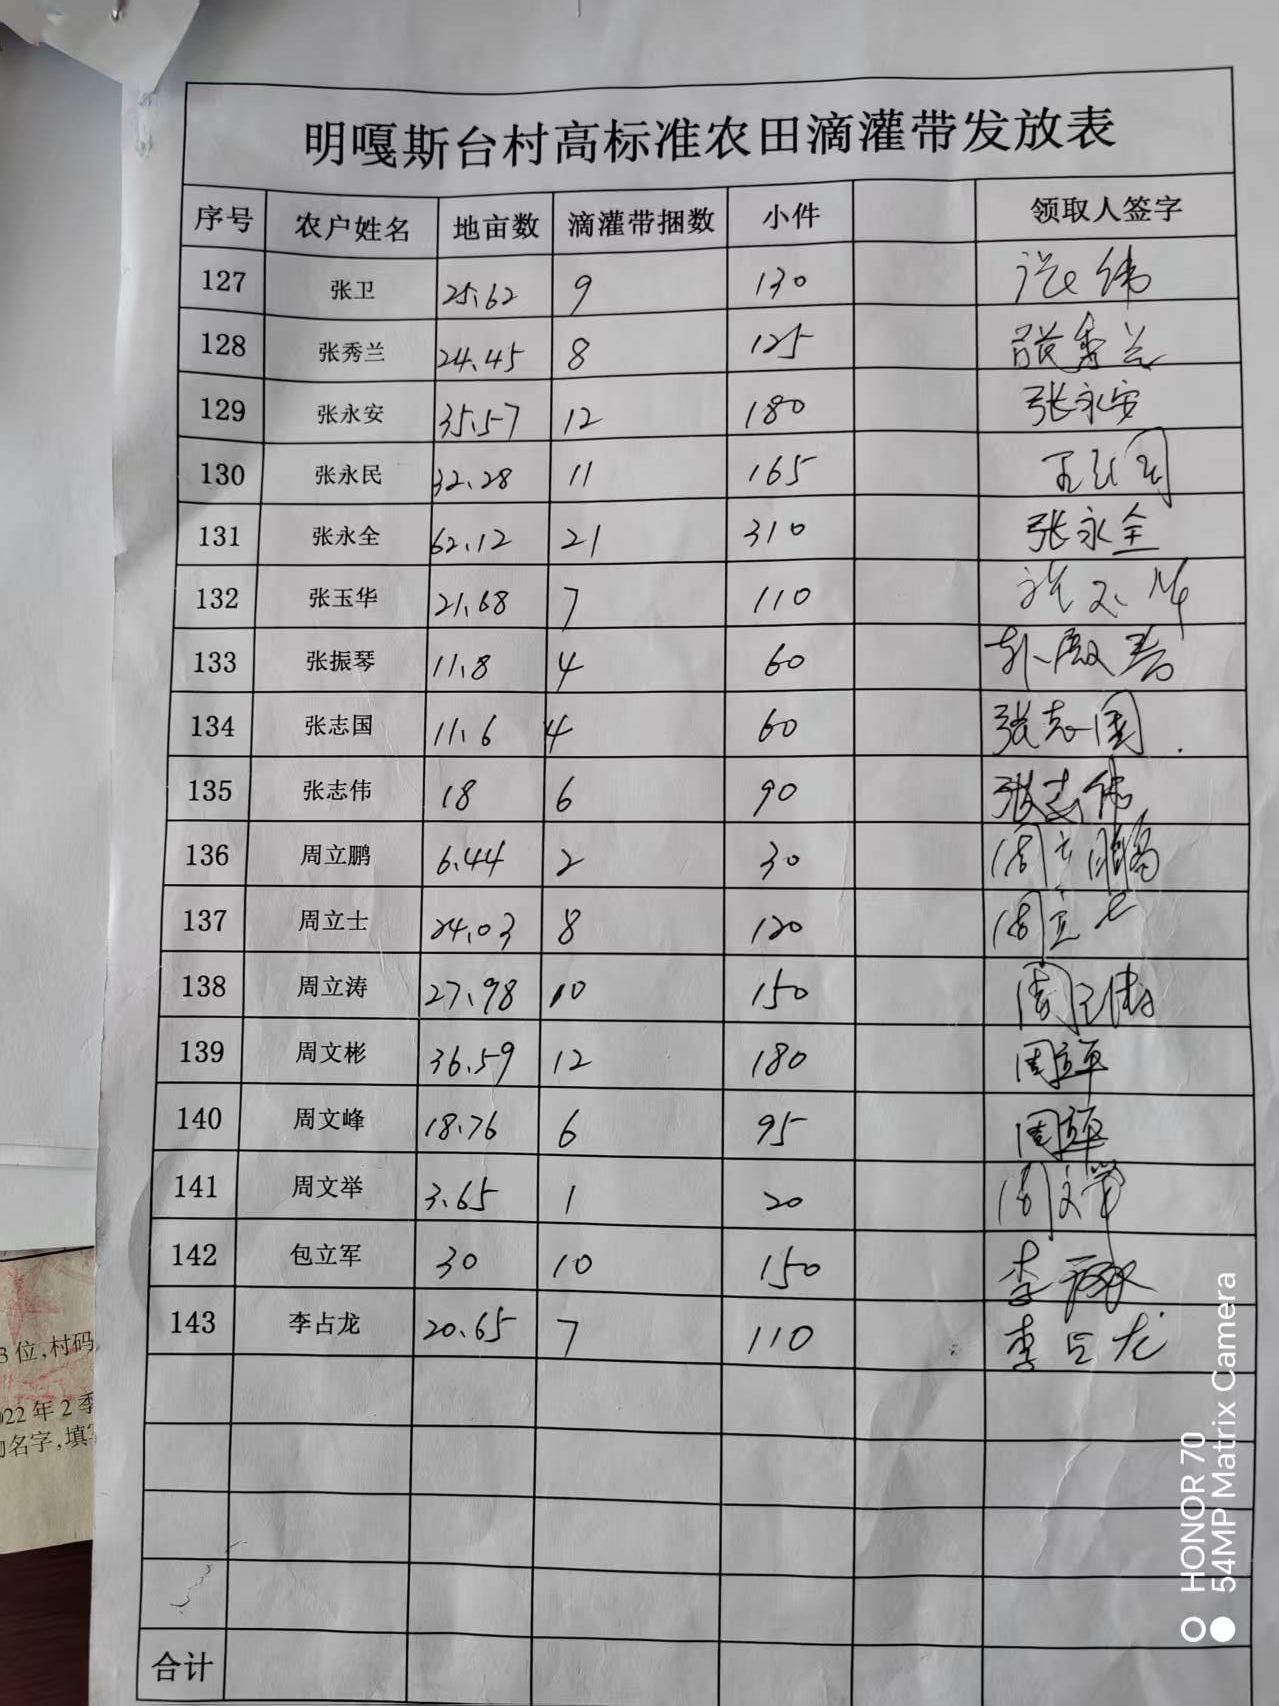 明嘎斯台村高标准农田滴灌带发放表
序号 农户姓名 地亩数 滴灌带捆数 小件 领取人签字
127 张卫 25.62 9 130 张伟
128 张秀兰 24.45 8 125 张秀兰
129 张永安 35.57 12 180 张永安
130 张永民 32.28 11 165
131 张永全 62.12 21 310 张永全
132 张玉华 21.68 7 110 张玉华
133 张振琴 11.8 4 60
134 张志国 11.6 4 60 张志国
135 张志伟 18 6 90 张志伟
136 周立鹏 6.44 2 30 周立鹏
137 周立士 24.03 8 120 周立士
138 周立涛 27.98 10 150 周立涛
139 周文彬 36.59 12 180
140 周文峰 18.76 6 95
141 周文举 3.65 1 20 周文举
142 包立军 30 10 150 李
143 李占龙 20.65 7 110 李占龙
合计
3位,村码
022年2季
名字,填
HONOR 70
54MP Matrix Camera